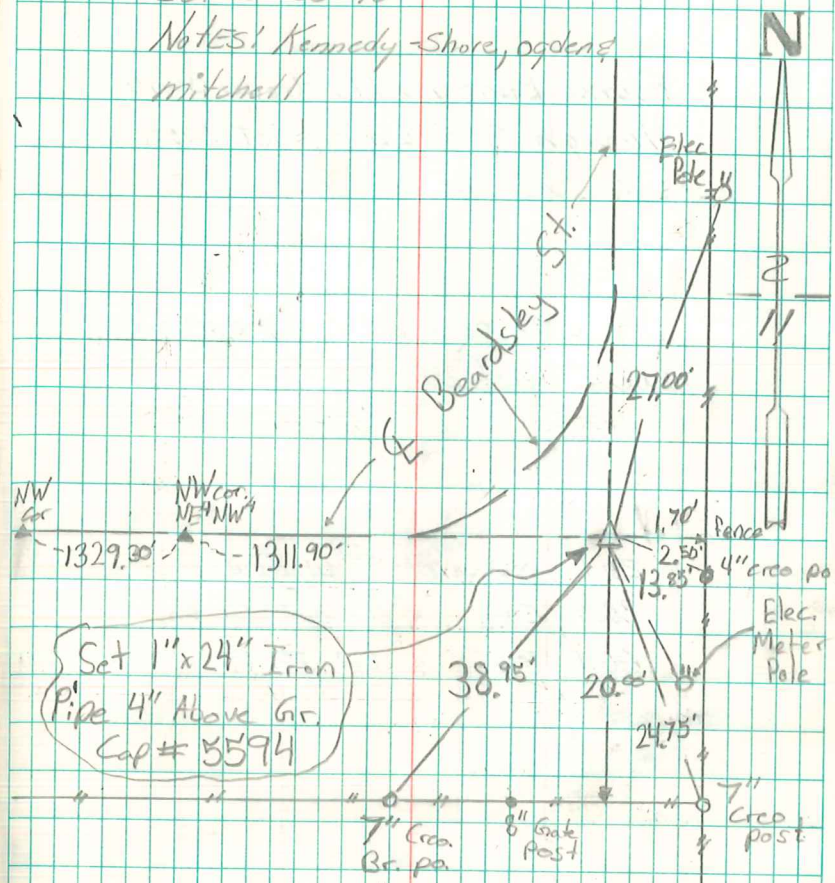 Notes: Kennedy-Shore, ogden &
mitchell
N
Elec.
Pole
2
11
℄ Beardsley St.
27.00'
NW
cor
NW cor.
NE4NW4
1329.30'
1311.90'
1.70'
fence
2.50'
4" creo po
13.85'
Elec.
Meter
Pole
Set 1"x24" Iron
Pipe 4" Above Gr.
Cap # 5594
38.95'
20.00'
24.75'
7" Creo.
Br. po.
8" Gate
post
7"
Creo
post